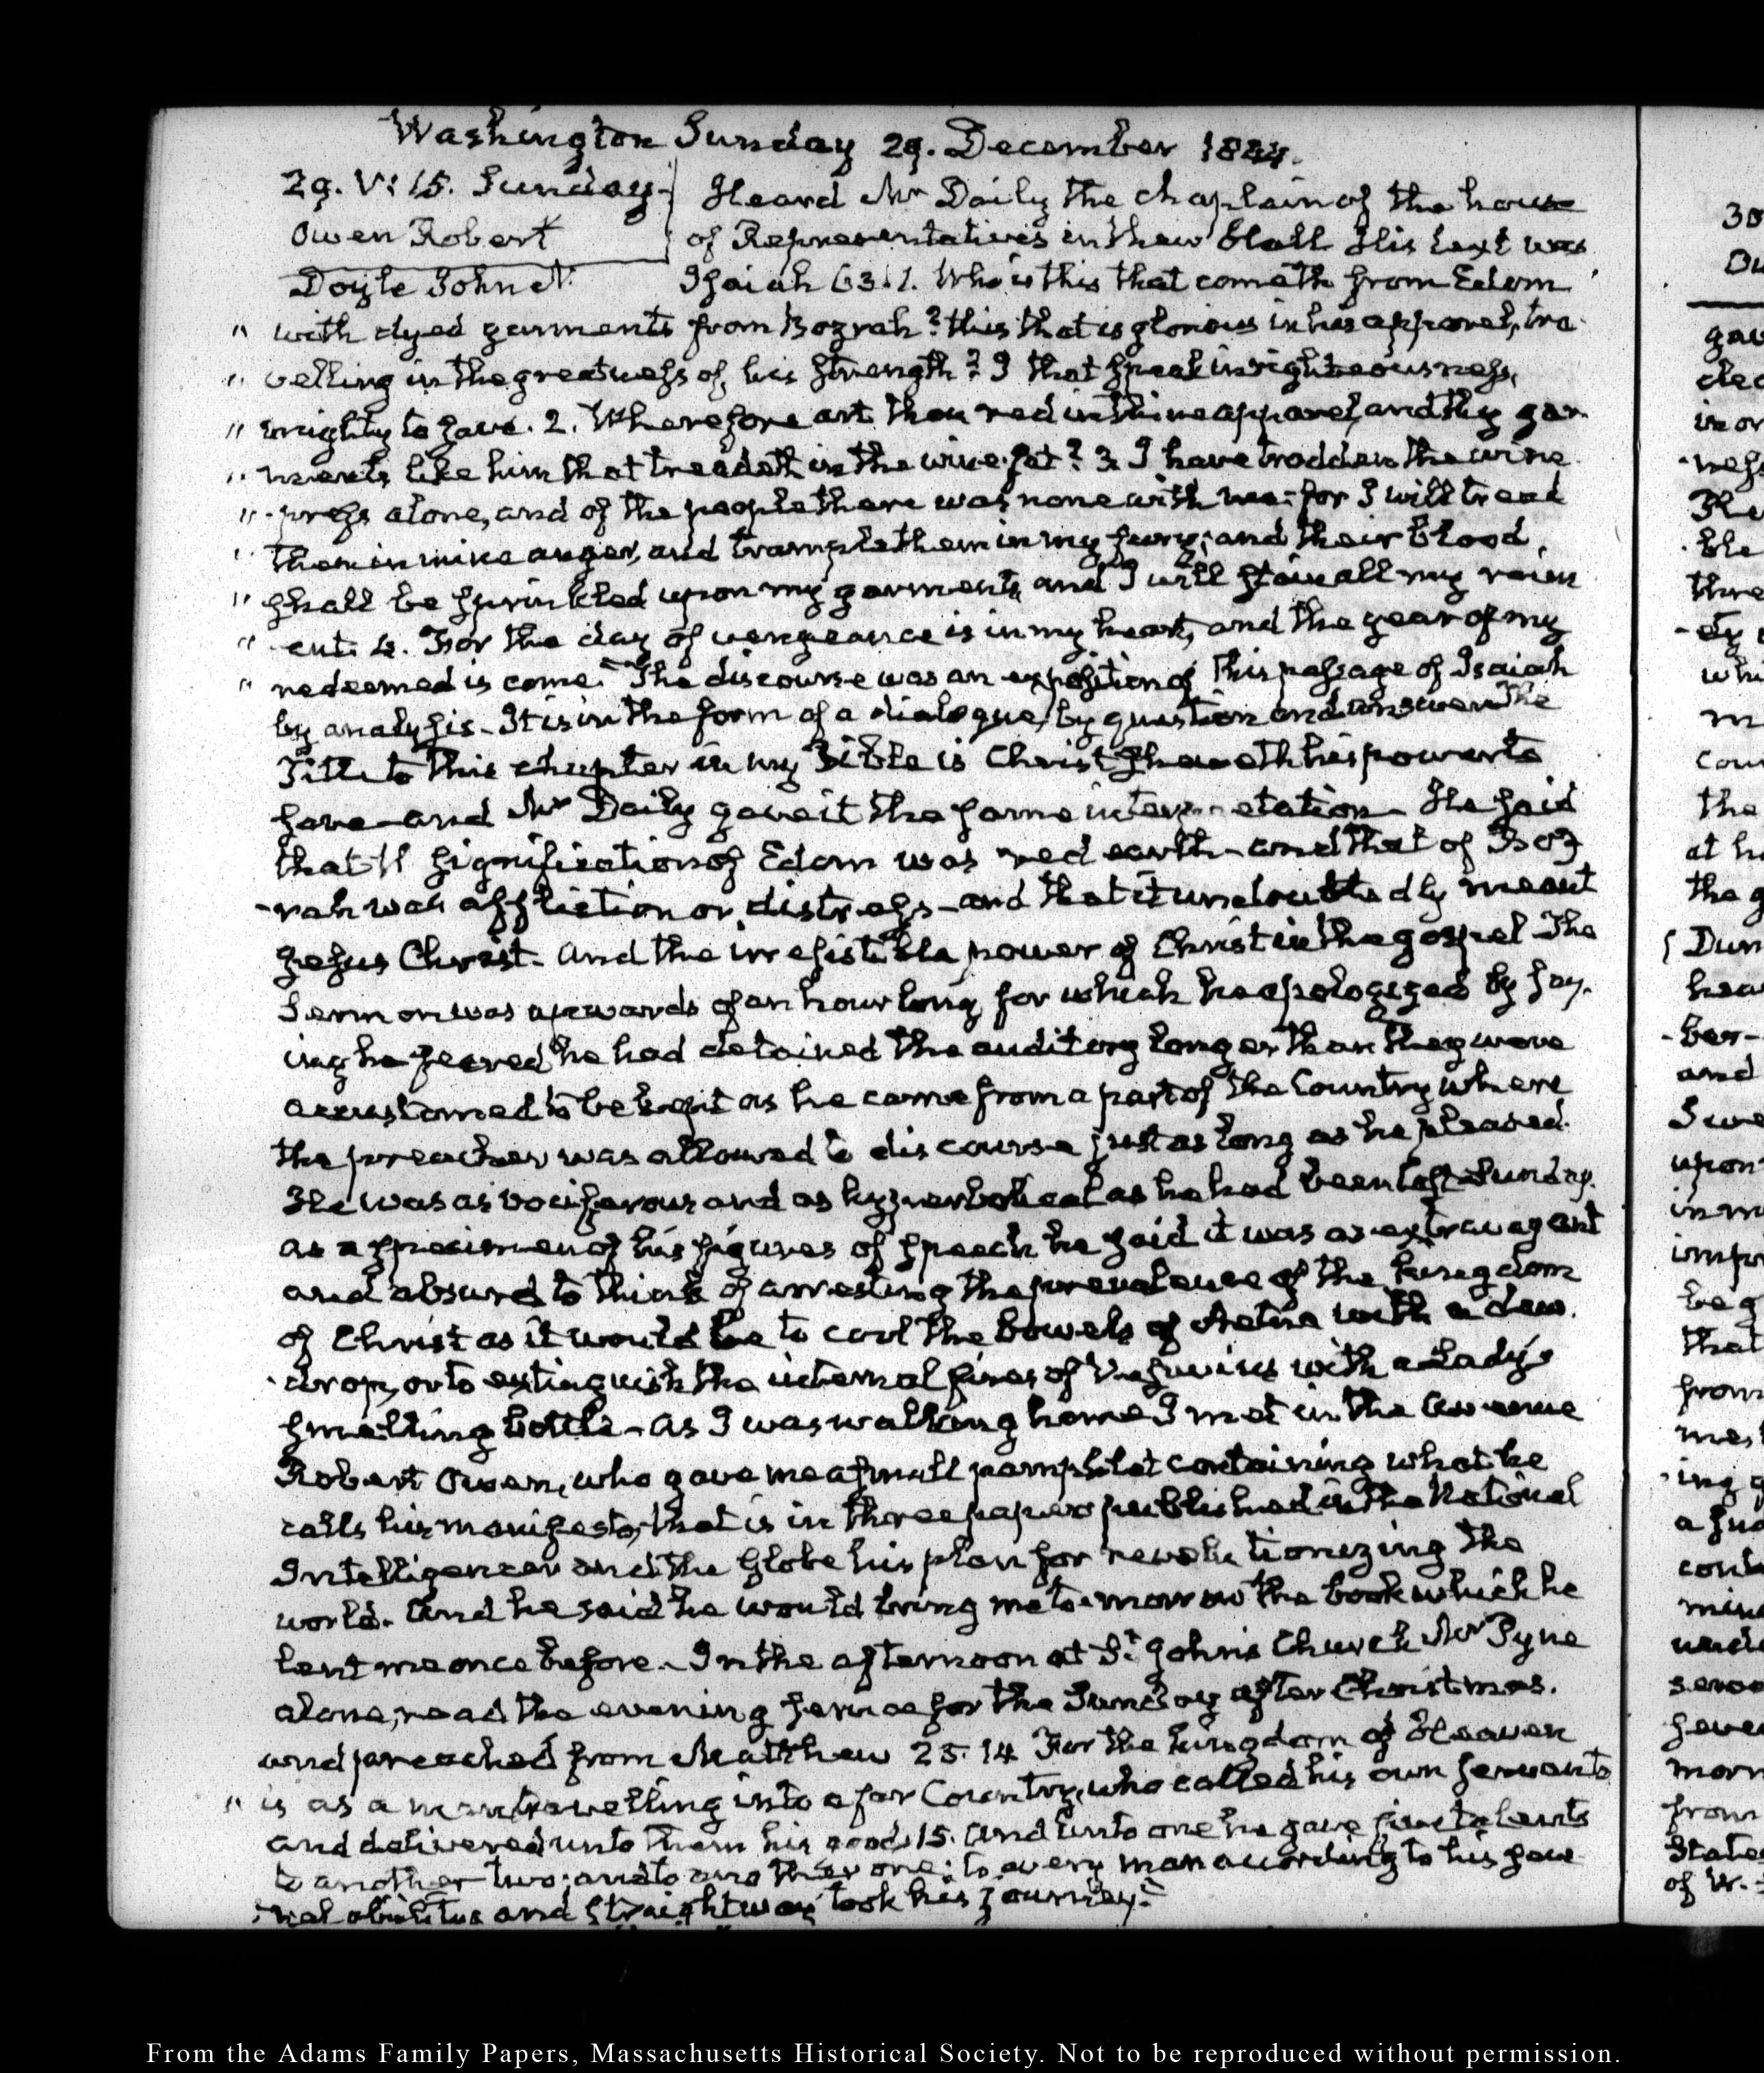 Washington Sunday 29. December 1844.
29. V: 15. Sunday.
Owen Robert
Doyle John T.
Heard Mr Daily the chaplain of the house
of Representatives in their Hall His text was
Isaiah 63.1. Who is this that cometh from Edom
" with dyed garments from Bozrah? this that is glorious in his apparel, tra-
" velling in the greatness of his strength? I that speak in righteousness,
" mighty to save. 2. Wherefore art thou red in thine apparel, and thy gar-
" ments like him that treadeth in the wine-fat? 3. I have trodden the wine
" -press alone, and of the people there was none with me: for I will tread
' them in mine anger, and trample them in my fury; and their blood
" shall be sprinkled upon my garments, and I will stain all my raim
" -ent. 4. For the day of vengeance is in my heart, and the year of my
" redeemed is come." The discourse was an exposition of this passage of Isaiah
by analysis- It is in the form of a dialogue, by question and answer. The
Title to this chapter in my Bible is Christ sheweth his power to
save-and Mr Daily gave it the same interpretation- He said
that signification of Edom was red earth-and that of Boz
-rah was affliction or distress-and that it undoubtedly meant
Jesus Christ. and the irresistible power of Christ in the gospel The
Sermon was upwards of an hour long, for which he apologized by say-
ing he feared he had detained the auditory longer than they were
accustomed to be kept as he came from a part of the Country where
the preacher was allowed to discourse just as long as he pleased.
He was as vociferous and as hyperbolical as he had been last Sunday.
as a specimen of his figures of speech he said it was as extravagant
and absurd to think of arresting the prevalence of the kingdom
of Christ as it would be to cool the bowels of Aetna with a dew.
-drop, or to extinguish the internal fires of Vesuvius with a Lady's
smelling bottle-as I was walking home I met in the Avenue
Robert Owen, who gave me a small pamphlet containing what he
calls his manifesto, that is in three papers published in the National
Intelligencer and the Globe his plan for revolutionizing the
world. And he said he would bring me to-morrow the book which he
lent me once before.- In the afternoon at St. John's Church Mr Pyne
alone, read the evening service for the Sunday after Christmas.
and preached from Matthew 25.14 For the kingdom of Heaven
" is as a man travelling into a far Country, who called his own servants
and delivered unto them his goods 15. and unto one he gave five talents
to another two; and to another one; to every man according to his seve
-ral abilities and straightway took his journey."
30
Ou
gav
dec
in or
-ness
The
ble
thre
-ey
whi
m
cou
the
at h
the g
Dun
hea
-ber-
and
I we
upon
in m
impr
be g
that
from
mes
ing
a su
cont
min
unde
seve
morn
from
States
of W.
From the Adams Family Papers, Massachusetts Historical Society. Not to be reproduced without permission.